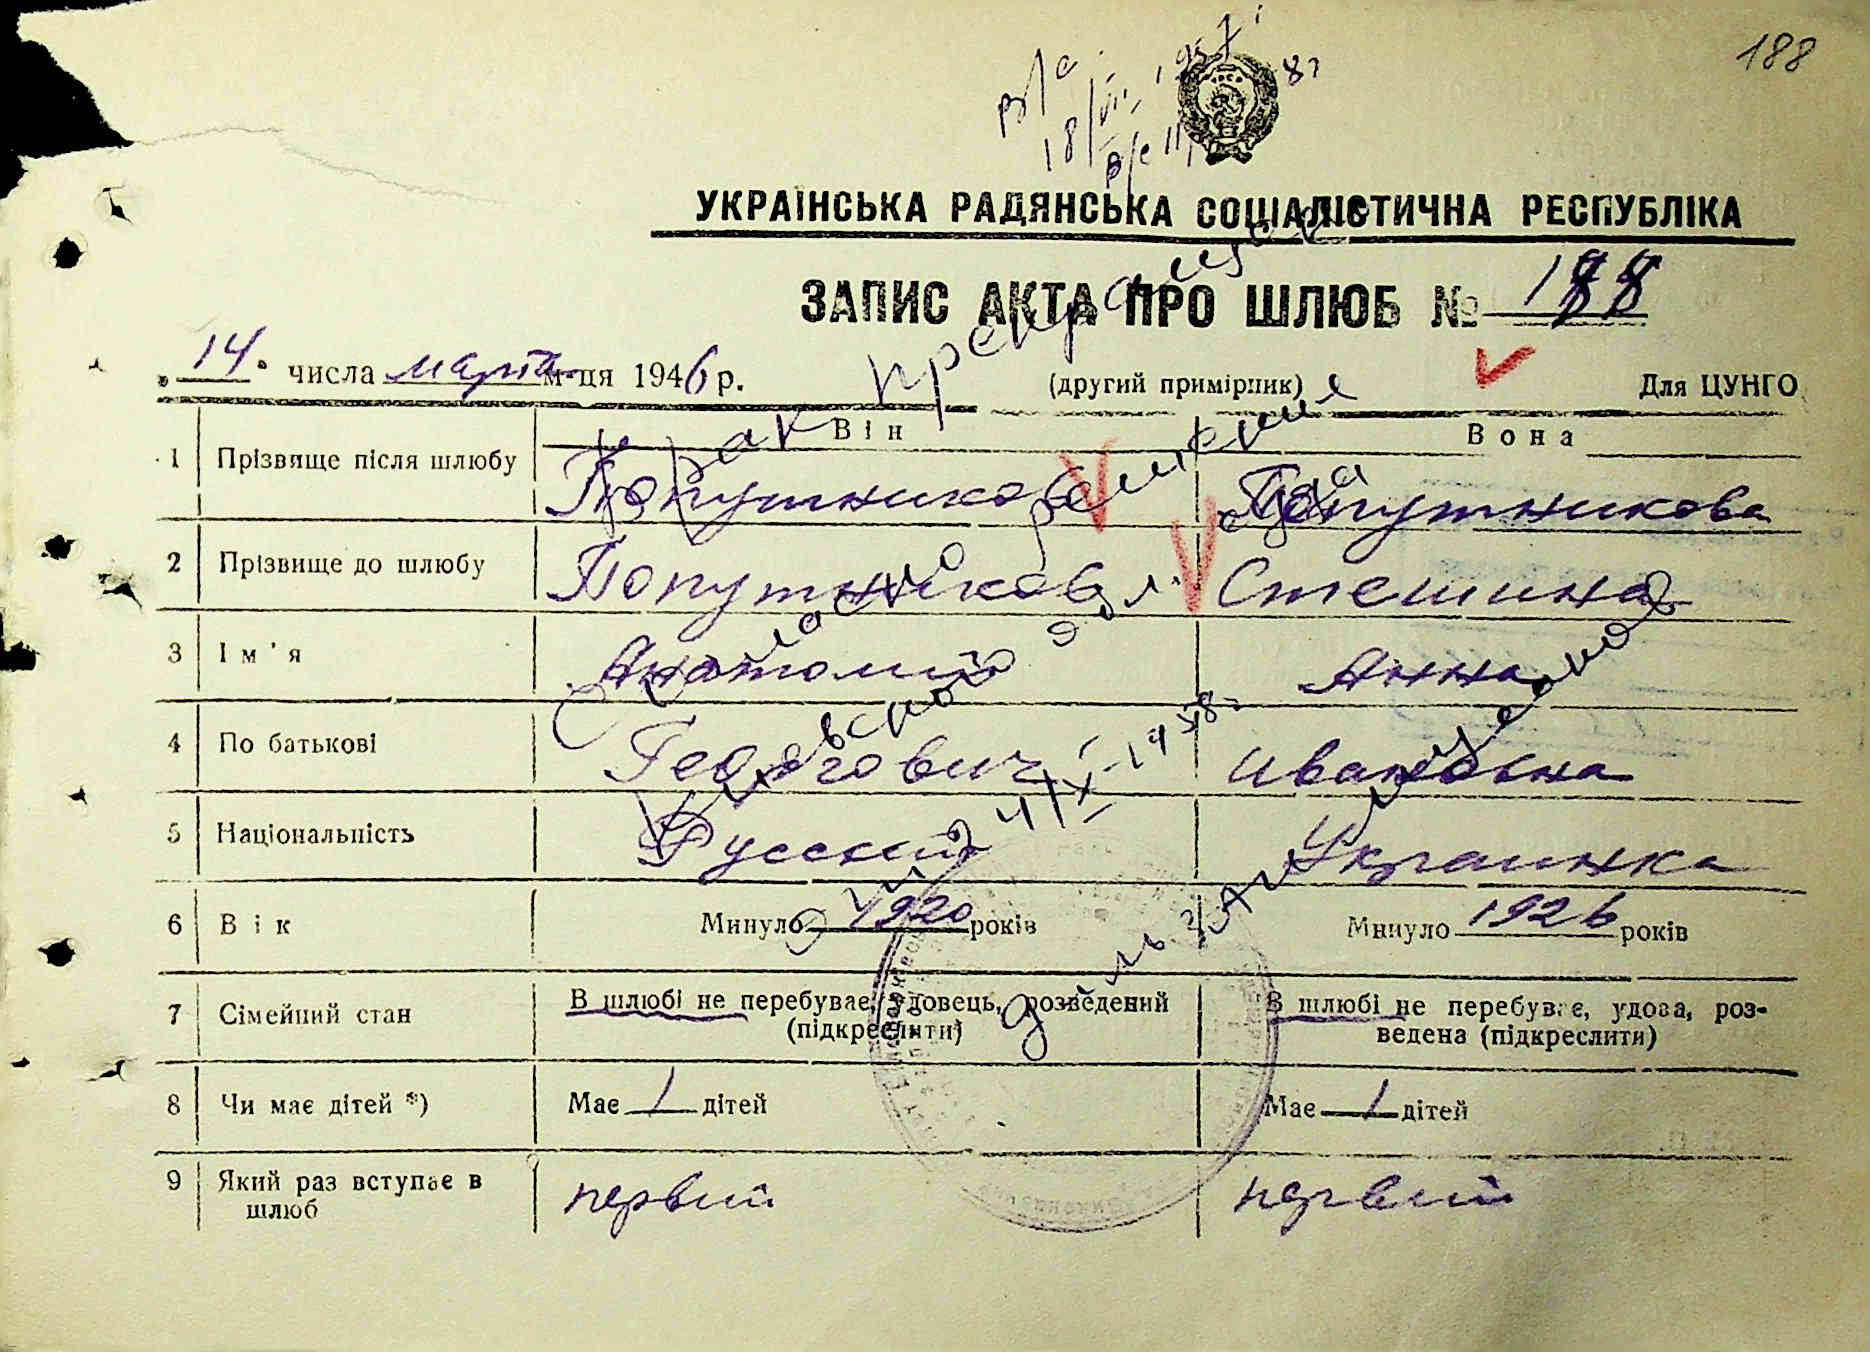 188
18/VII 1957
УКРАЇНСЬКА РАДЯНСЬКА СОЦІАЛІСТИЧНА РЕСПУБЛІКА
ЗАПИС АКТА ПРО ШЛЮБ № 188
„14" числа марта м-ця 1946 р. (другий примірник) Для ЦУНГО
Він Вона
1 Прізвище після шлюбу Попутников Попутникова
2 Прізвище до шлюбу Попутников Стешина
3 Ім'я Анатолий Анна
4 По батькові Георгович Ивановна
5 Національність Русский Украинка
6 Вік Минуло 1920 років Минуло 1926 років
7 Сімейний стан В шлюбі не перебуває, удовець, розведений (підкреслити) В шлюбі не перебуває, удова, роз-
ведена (підкреслити)
8 Чи має дітей *) Має 1 дітей Має 1 дітей
9 Який раз вступає в шлюб первий первий
Брак прекращен
решения